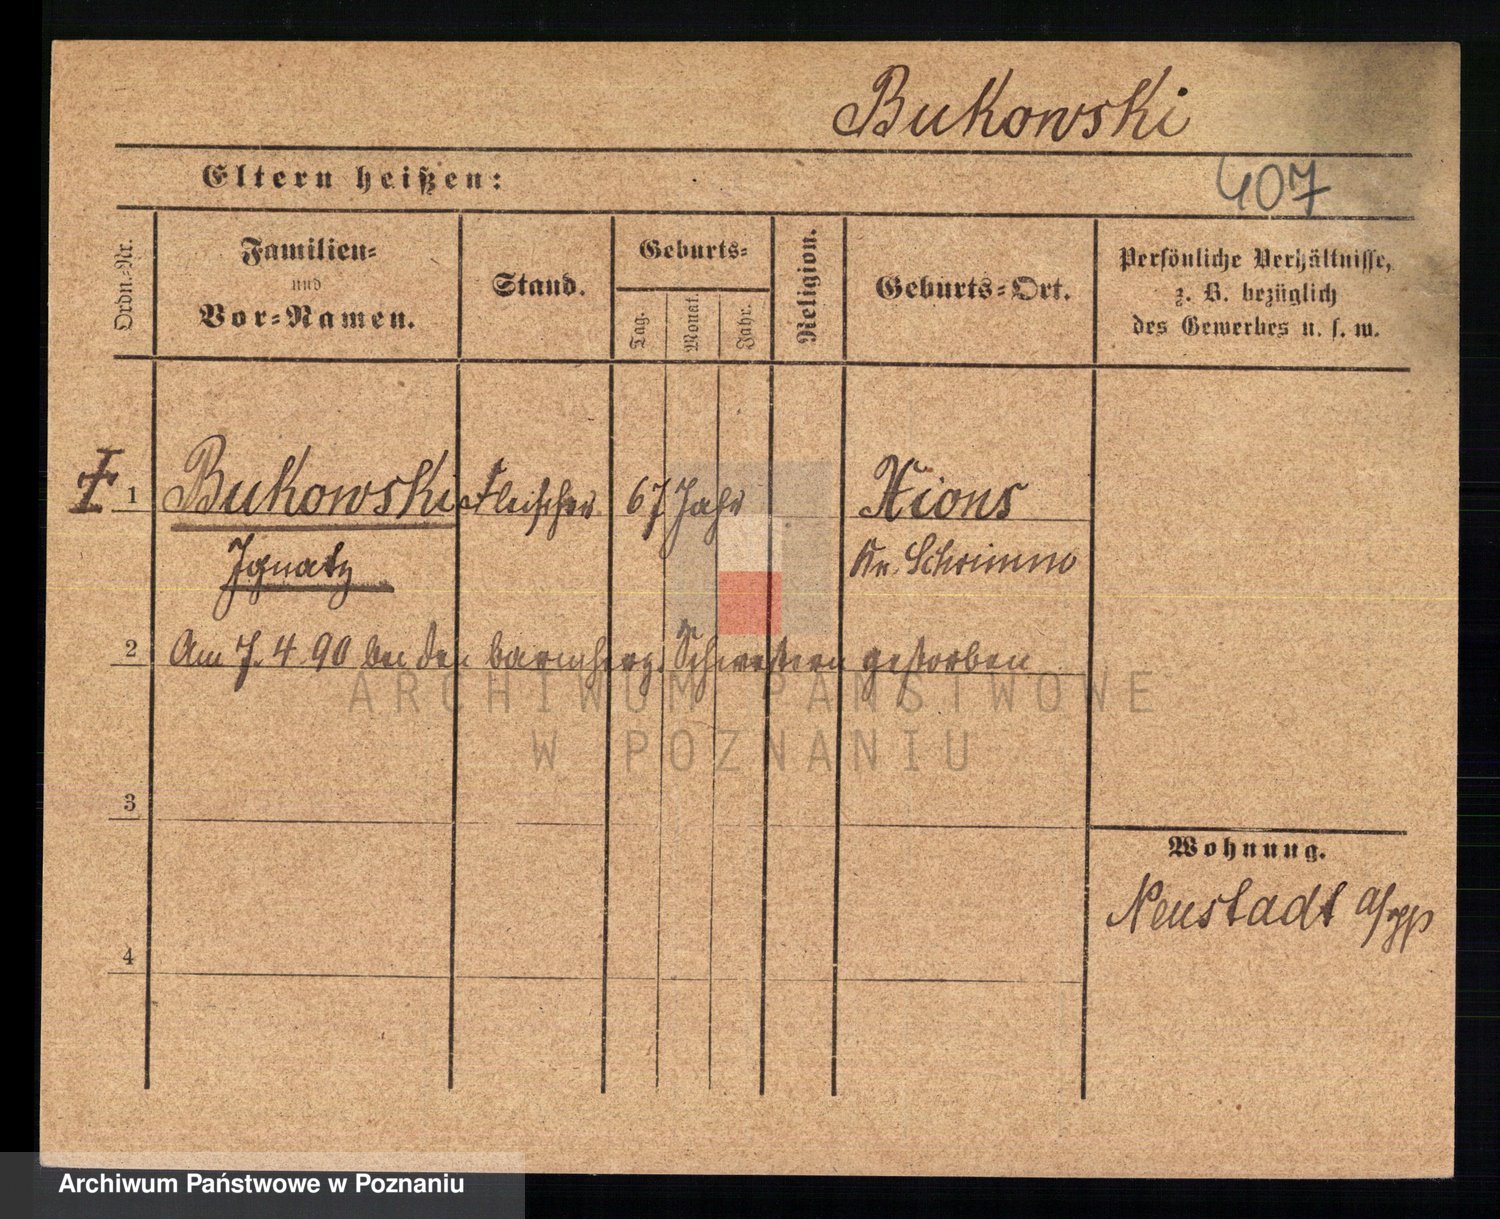 Bukowski
Eltern heißen:
407
Ordn.-Nr.
Familien-
und
Vor-Namen.
Stand.
Geburts-
Tag.
Monat.
Jahr.
Religion.
Geburts-Ort.
Persönliche Verhältnisse,
z. B. bezüglich
des Gewerbes u. s. w.
1 Bukowski Fleischer 67 Jahr Xions
Ignatz Kr. Schrimm
2 Am 7. 4. 90 bei den barmherz. Schwestern gestorben
ARCHIWUM PAŃSTWOWE
W POZNANIU
3
Wohnung.
Neustadt a/
4
Archiwum Państwowe w Poznaniu